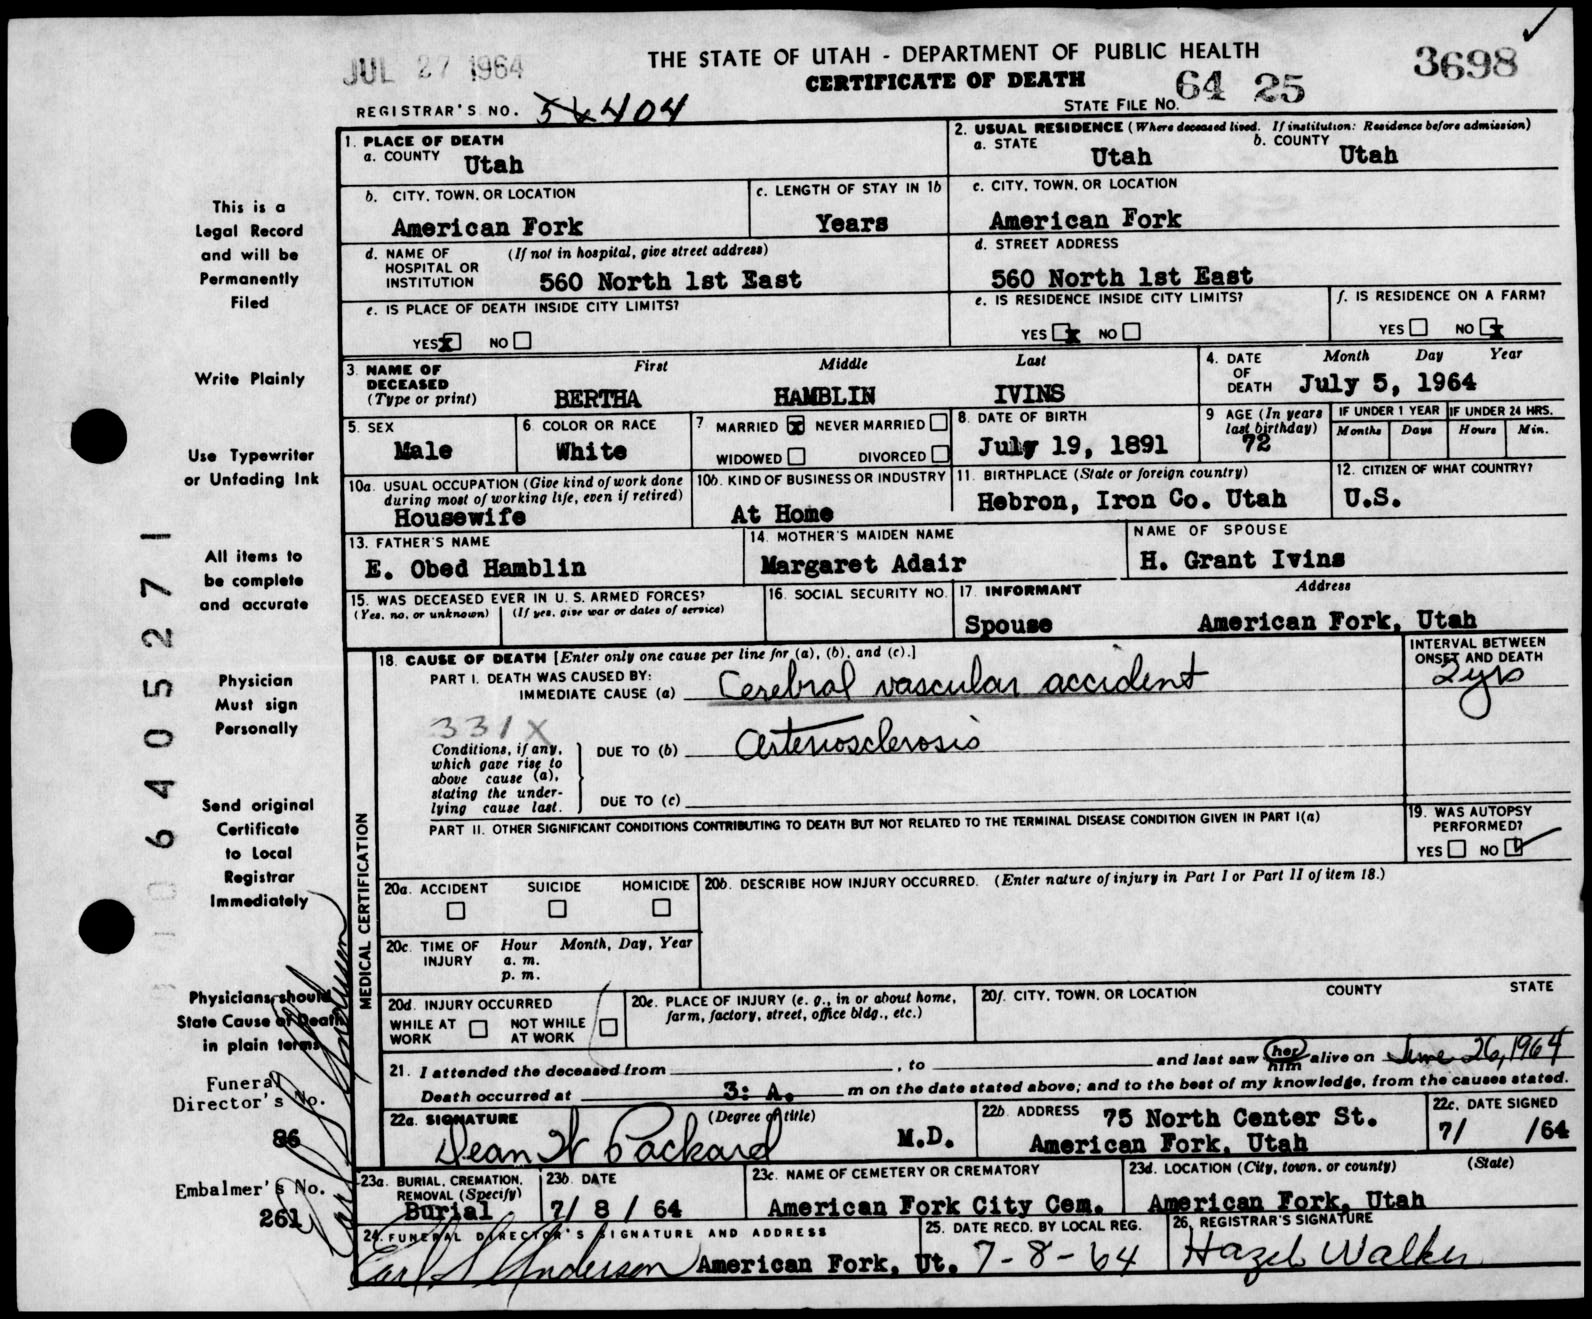 JUL 27 1964
THE STATE OF UTAH - DEPARTMENT OF PUBLIC HEALTH
CERTIFICATE OF DEATH
3698
REGISTRAR'S NO. 404
STATE FILE NO. 64 25
1. PLACE OF DEATH
a. COUNTY Utah
2. USUAL RESIDENCE (Where deceased lived. If institution: Residence before admission)
a. STATE Utah b. COUNTY Utah
b. CITY, TOWN, OR LOCATION
American Fork
c. LENGTH OF STAY IN 1b
Years
c. CITY, TOWN, OR LOCATION
American Fork
d. NAME OF HOSPITAL OR INSTITUTION (If not in hospital, give street address)
560 North 1st East
d. STREET ADDRESS
560 North 1st East
e. IS PLACE OF DEATH INSIDE CITY LIMITS?
YES x NO
e. IS RESIDENCE INSIDE CITY LIMITS?
YES x NO
f. IS RESIDENCE ON A FARM?
YES NO x
3. NAME OF DECEASED (Type or print)
First Middle Last
BERTHA HAMBLIN IVINS
4. DATE OF DEATH Month Day Year
July 5, 1964
5. SEX
Male
6. COLOR OR RACE
White
7 MARRIED x NEVER MARRIED
WIDOWED DIVORCED
8. DATE OF BIRTH
July 19, 1891
9 AGE (In years last birthday)
72
IF UNDER 1 YEAR
Months Days
IF UNDER 24 HRS.
Hours Min.
10a. USUAL OCCUPATION (Give kind of work done during most of working life, even if retired)
Housewife
10b. KIND OF BUSINESS OR INDUSTRY
At Home
11. BIRTHPLACE (State or foreign country)
Hebron, Iron Co. Utah
12. CITIZEN OF WHAT COUNTRY?
U.S.
13. FATHER'S NAME
E. Obed Hamblin
14. MOTHER'S MAIDEN NAME
Margaret Adair
NAME OF SPOUSE
H. Grant Ivins
15. WAS DECEASED EVER IN U. S. ARMED FORCES?
(Yes, no, or unknown) (If yes, give war or dates of service)
16. SOCIAL SECURITY NO.
17. INFORMANT Address
Spouse American Fork, Utah
MEDICAL CERTIFICATION
18. CAUSE OF DEATH [Enter only one cause per line for (a), (b), and (c).]
INTERVAL BETWEEN ONSET AND DEATH
PART I. DEATH WAS CAUSED BY:
IMMEDIATE CAUSE (a) Cerebral vascular accident
2 yrs
331X
Conditions, if any, which gave rise to above cause (a), stating the underlying cause last.
DUE TO (b) arteriosclerosis
DUE TO (c)
PART II. OTHER SIGNIFICANT CONDITIONS CONTRIBUTING TO DEATH BUT NOT RELATED TO THE TERMINAL DISEASE CONDITION GIVEN IN PART I(a)
19. WAS AUTOPSY PERFORMED?
YES NO ✓
20a. ACCIDENT SUICIDE HOMICIDE
20b. DESCRIBE HOW INJURY OCCURRED. (Enter nature of injury in Part I or Part II of item 18.)
20c. TIME OF INJURY Hour Month, Day, Year
a. m.
p. m.
20d. INJURY OCCURRED
WHILE AT WORK NOT WHILE AT WORK
20e. PLACE OF INJURY (e. g., in or about home, farm, factory, street, office bldg., etc.)
20f. CITY, TOWN, OR LOCATION COUNTY STATE
21. I attended the deceased from , to and last saw her him alive on June 26, 1964
Death occurred at 3: A. m on the date stated above; and to the best of my knowledge, from the causes stated.
22a. SIGNATURE (Degree or title)
Dean W Packard M.D.
22b. ADDRESS 75 North Center St.
American Fork, Utah
22c. DATE SIGNED
7/ /64
23a. BURIAL, CREMATION, REMOVAL (Specify)
Burial
23b DATE
7/ 8 / 64
23c. NAME OF CEMETERY OR CREMATORY
American Fork City Cem.
23d. LOCATION (City, town, or county) (State)
American Fork, Utah
24. FUNERAL DIRECTOR'S SIGNATURE AND ADDRESS
Earl S Anderson American Fork, Ut.
25. DATE RECD. BY LOCAL REG.
7-8-64
26. REGISTRAR'S SIGNATURE
Hazel Walker
This is a
Legal Record
and will be
Permanently
Filed
Write Plainly
Use Typewriter
or Unfading Ink
All items to
be complete
and accurate
Physician
Must sign
Personally
Send original
Certificate
to Local
Registrar
Immediately
Physicians should
State Cause of Death
in plain terms
Funeral
Director's No.
86
Embalmer's No.
261
Earl S Anderson
0 6 4 0 5 2 7 1